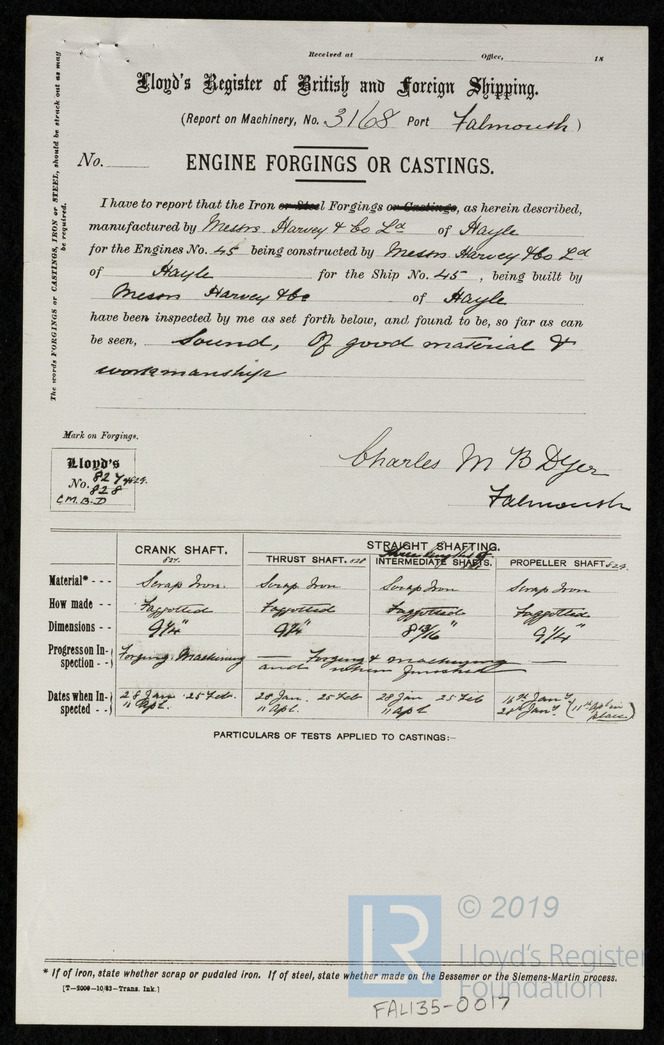 Received at Office, 18
Lloyd's Register of British and Foreign Shipping.
(Report on Machinery, No. 3168 Port Falmouth)
No.
ENGINE FORGINGS OR CASTINGS.
The words FORGINGS or CASTINGS, IRON or STEEL, should be struck out as may
be required.
I have to report that the Iron or Steel Forgings or Castings, as herein described,
manufactured by Messrs Harvey & Co Ld of Hayle
for the Engines No. 45 being constructed by Messrs Harvey & Co Ld
of Hayle for the Ship No. 45, being built by
Messrs Harvey & Co of Hayle
have been inspected by me as set forth below, and found to be, so far as can
be seen, Sound, Of good material &
workmanship
Mark on Forgings.
Lloyd's
No. 827 829
828
C.M.B.D
Charles M B Dyer
Falmouth
CRANK SHAFT. 827. STRAIGHT SHAFTING.
THRUST SHAFT. 828 INTERMEDIATE SHAFTS. PROPELLER SHAFT. 829.
Material* - - - Scrap Iron. Scrap Iron Scrap Iron Scrap Iron
How made - - Faggotted Faggotted Faggotted Faggotted
Dimensions - - 9 1/4" 9 1/4" 8 13/16" 9 1/4"
Progress on In- Forging Machining — Forging & machining —
spection - - and when finished
Dates when In- 28 Jan 25 Feb. 28 Jan. 25 Feb 28 Jan 25 Feb 16th Jany
spected - - 11 Apl. 11 Apl. 11 Apl 28th Jany. (11th Apl in place)
PARTICULARS OF TESTS APPLIED TO CASTINGS:—
© 2019
LR
Lloyd's Register
Foundation
* If of iron, state whether scrap or puddled iron. If of steel, state whether made on the Bessemer or the Siemens-Martin process.
[T—2000—10/83—Trans. Ink.]
FAL135-0017